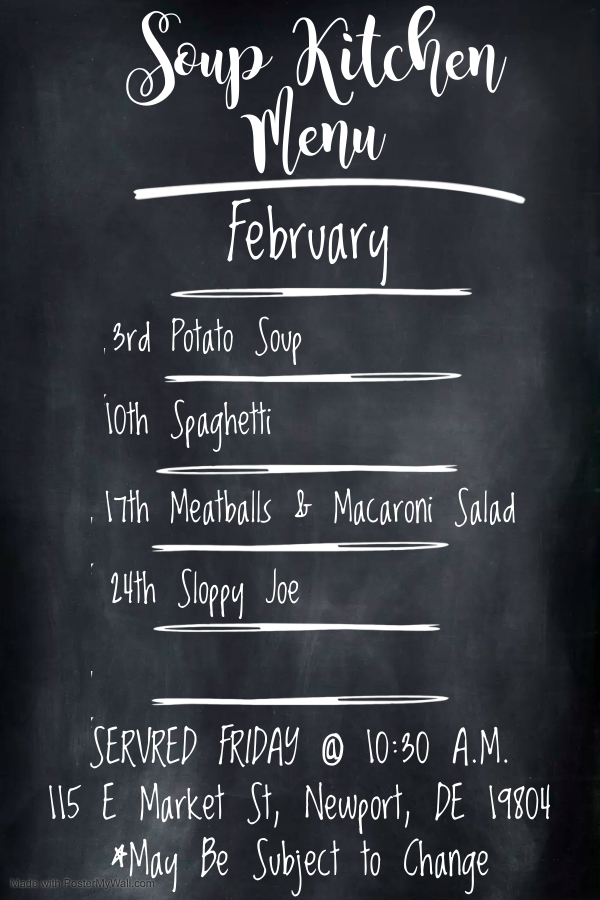 Soup Kitchen
Menu
February
3rd Potato Soup
10th Spaghetti
17th Meatballs & Macaroni Salad
24th Sloppy Joe
SERVRED FRIDAY @ 10:30 A.M.
115 E Market St, Newport, DE 19804
*May Be Subject to Change
Made with PosterMyWall.com